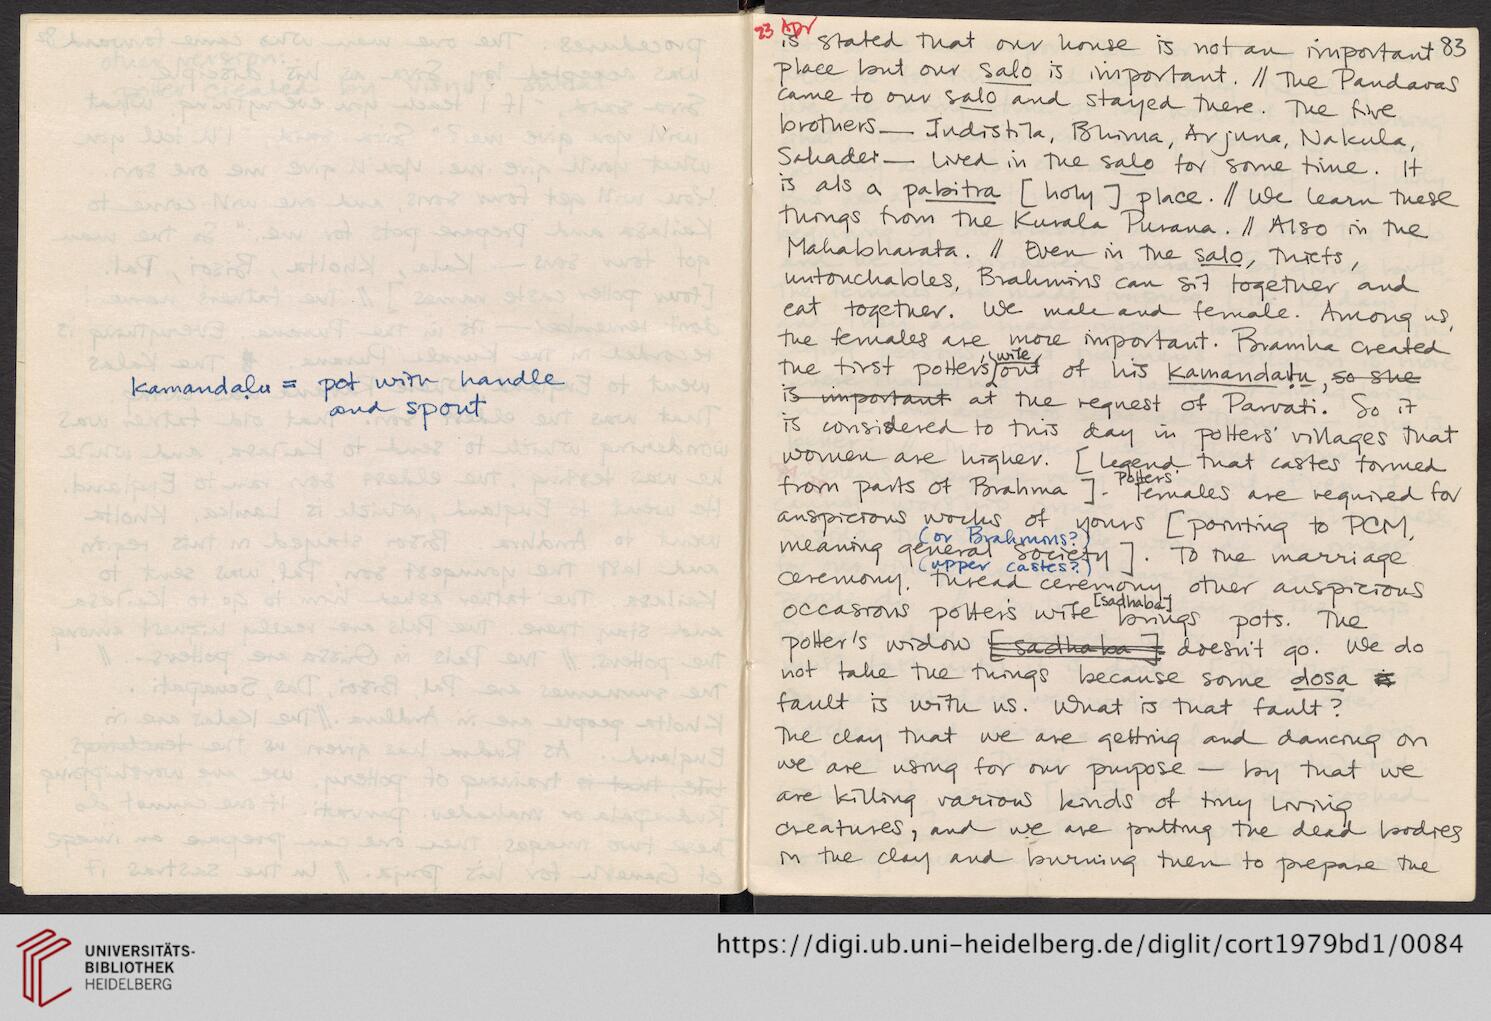 kamandaḷu = pot with handle
and spout
23 Apr
83
is stated that our house is not an important
place but our salo is important. // The Pandavas
came to our salo and stayed there. The five
brothers — Judistila, Bhima, Arjuna, Nakula,
Sahadei — lived in the salo for some time. It
is als a pabitra [holy] place. // We learn these
things from the Kurala Purana. // Also in the
Mahabharata. // Even in the salo, thiefs,
untouchables, Brahmins can sit together and
eat together. We male and female. Among us,
the females are more important. Bramha created
the first potters' (wife) out of his kamandaḷu, so she
is important at the request of Parvati. So it
is considered to this day in potters' villages that
women are higher. [legend that castes formed
from parts of Brahma]. Potters' females are required for
auspicious works of yours [pointing to PCM,
(or Brahmins?)
meaning general society]. To the marriage
(upper castes?)
ceremony, thread ceremony, other auspicious
occasions potter's wife [sadhaba] brings pots. The
potter's widow [sadhaba] doesn't go. We do
not take the things because some dosa is
fault is with us. What is that fault?
The clay that we are getting and dancing on
we are using for our purpose — by that we
are killing various kinds of tiny living
creatures, and we are putting the dead bodies
in the clay and burning then to prepare the
UNIVERSITÄTS-
BIBLIOTHEK
HEIDELBERG
https://digi.ub.uni-heidelberg.de/diglit/cort1979bd1/0084